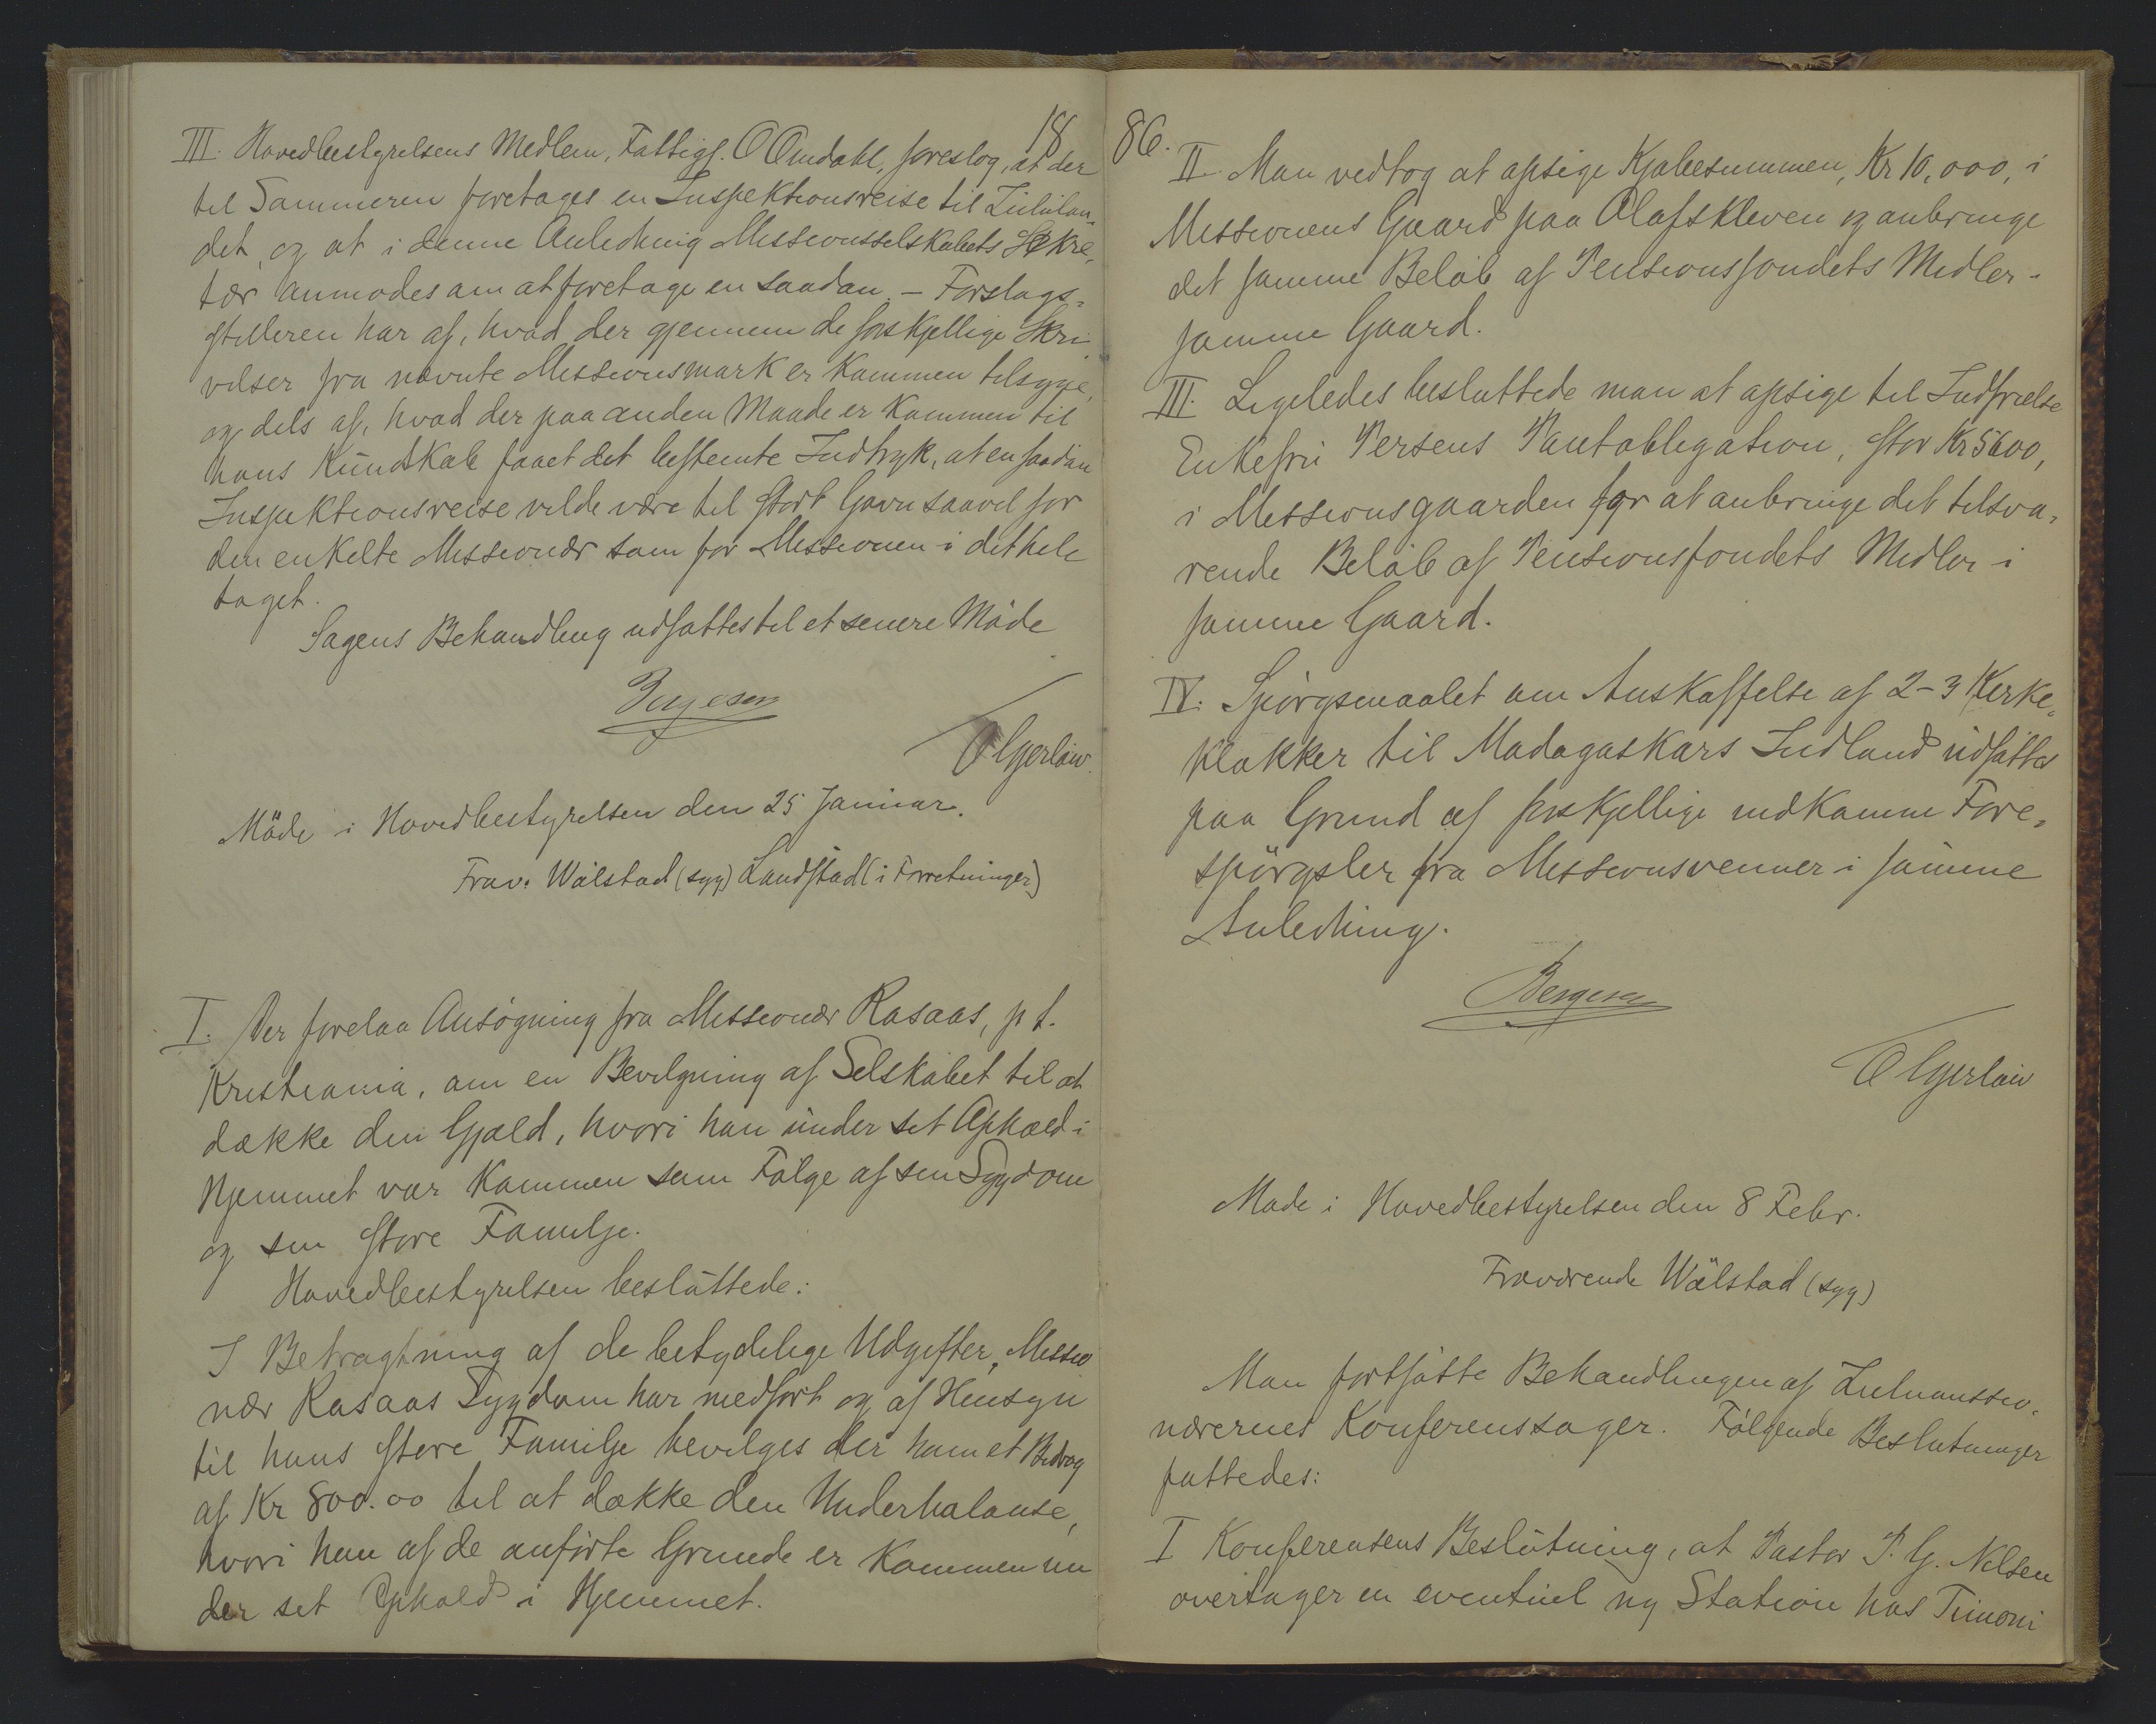 18
III. Hovedbestyrelsens Medlem, Fattigf. O Omdahl, foreslog, at der
til Sommeren foretages en Inspektionsreise til Zululan-
det, og at i denne Anledning Missionsselskabets Sekre-
tær anmodes om at foretage en saadan. – Forslags-
stilleren har af, hvad der gjennem de forskjellige Skri-
velser fra nævnte Missionsmark er kommen tilsyne,
og dels af, hvad der paa anden Maade er kommen til
hans Kundskab faaet det bestemte Indtryk, at en saadan
Inspektionsreise vilde være til stort Gavn saavel for
den enkelte Missionær som for Missionen i det hele
taget.
Sagens Behandling udsattes til et senere Möde
Borgesen
O Gjerløw.
Möde i Hovedbestyrelsen den 25 Januar.
Frav. Wälstad (syg) Landstad (i Forretninger)
I. Der forelaa Ansögning fra Missionær Rasaas, p t.
Kristiania, om en Bevilgning af Selskabet til at
dække den Gjæld, hvori han under sit Ophold i
Hjemmet var kommen som Fölge af sin Sygdom
og sin store Familje.
Hovedbestyrelsen besluttede:
I Betragtning af de betydelige Udgifter, Missio
nær Rasaas Sygdom har medført og af Hensyn
til hans store Familje bevilges der ham et Bidrag
af Kr 800.00 til at dække den Underbalanse,
hvori han af de anførte Grunde er kommen un
der sit Ophold i Hjemmet.
86.
II. Man vedtog at opsige Kjøbesummen, Kr 10,000, i
Missionens Gaard paa Olafskleven og anbringe
det samme Beløb af Pensionsfondets Midler i
samme Gaard.
III. Ligeledes besluttede man at opsige til Indfrielse
Enkefru Persens Pantobligation, stor Kr 5600,
i Missionsgaarden for at anbringe det tilsva-
rende Beløb af Pensionsfondets Midler i
samme Gaard.
IV. Spörgsmaalet om Anskaffelse af 2-3 Kirke-
klokker til Madagaskars Indland udsattes
paa Grund af forskjellige indkomne Fore-
spörgsler fra Missionsvenner i samme
Anledning.
Borgesen
O Gjerløw
Møde i Hovedbestyrelsen den 8 Febr.
Fraværende Wälstad (syg)
Man fortsatte Behandlingen af Zulumissio-
nærernes Konferenssager. Følgende Beslutninger
fattedes:
I Konferensens Beslutning, at Pastor P. G. Nilsen
overtager en eventuel ny Station hos Timoni